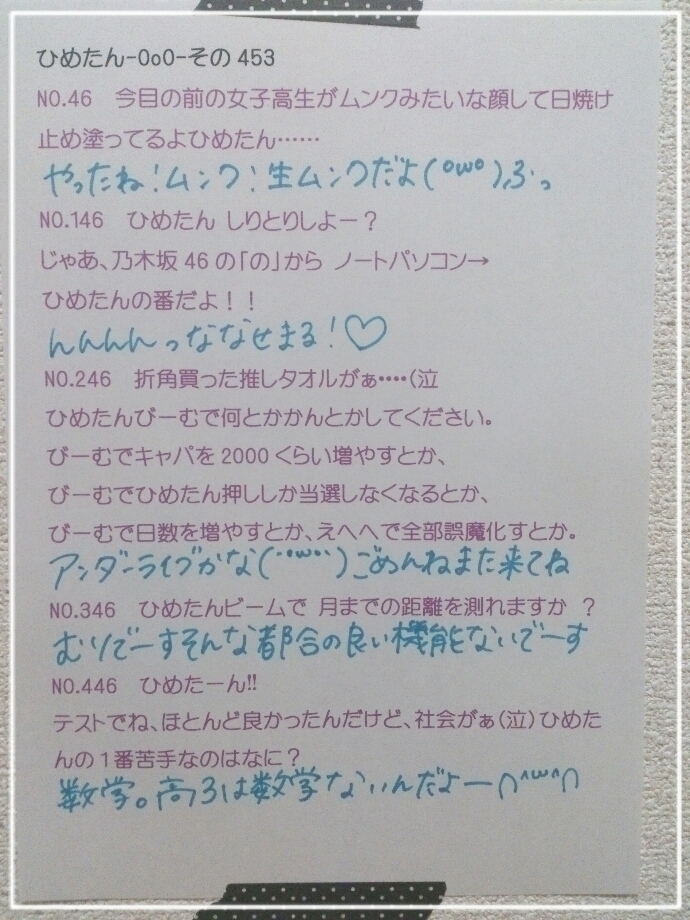 ひめたん-OoO-その453
NO.46　今目の前の女子高生がムンクみたいな顔して日焼け
止め塗ってるよひめたん……
やったね！ムンク！生ムンクだよ(°ω°)ふっ
NO.146　ひめたん しりとりしよー？
じゃあ、乃木坂46の「の」から ノートパソコン→
ひめたんの番だよ！！
んんんんっななせまる！♡
NO.246　折角買った推しタオルがぁ‥‥(泣
ひめたんびーむで何とかかんとかしてください。
びーむでキャパを2000くらい増やすとか、
びーむでひめたん押ししか当選しなくなるとか、
びーむで日数を増やすとか、えへへで全部誤魔化すとか。
アンダーライブかな(¨°ω°¨)ごめんねまた来てね
NO.346　ひめたんビームで 月までの距離を測れますか ？
むりでーすそんな都合の良い機能ないでーす
NO.446　ひめたーん!!
テストでね、ほとんど良かったんだけど、社会がぁ(泣)ひめた
んの1番苦手なのはなに？
数学。高3は数学ないんだよー∩^ω^∩